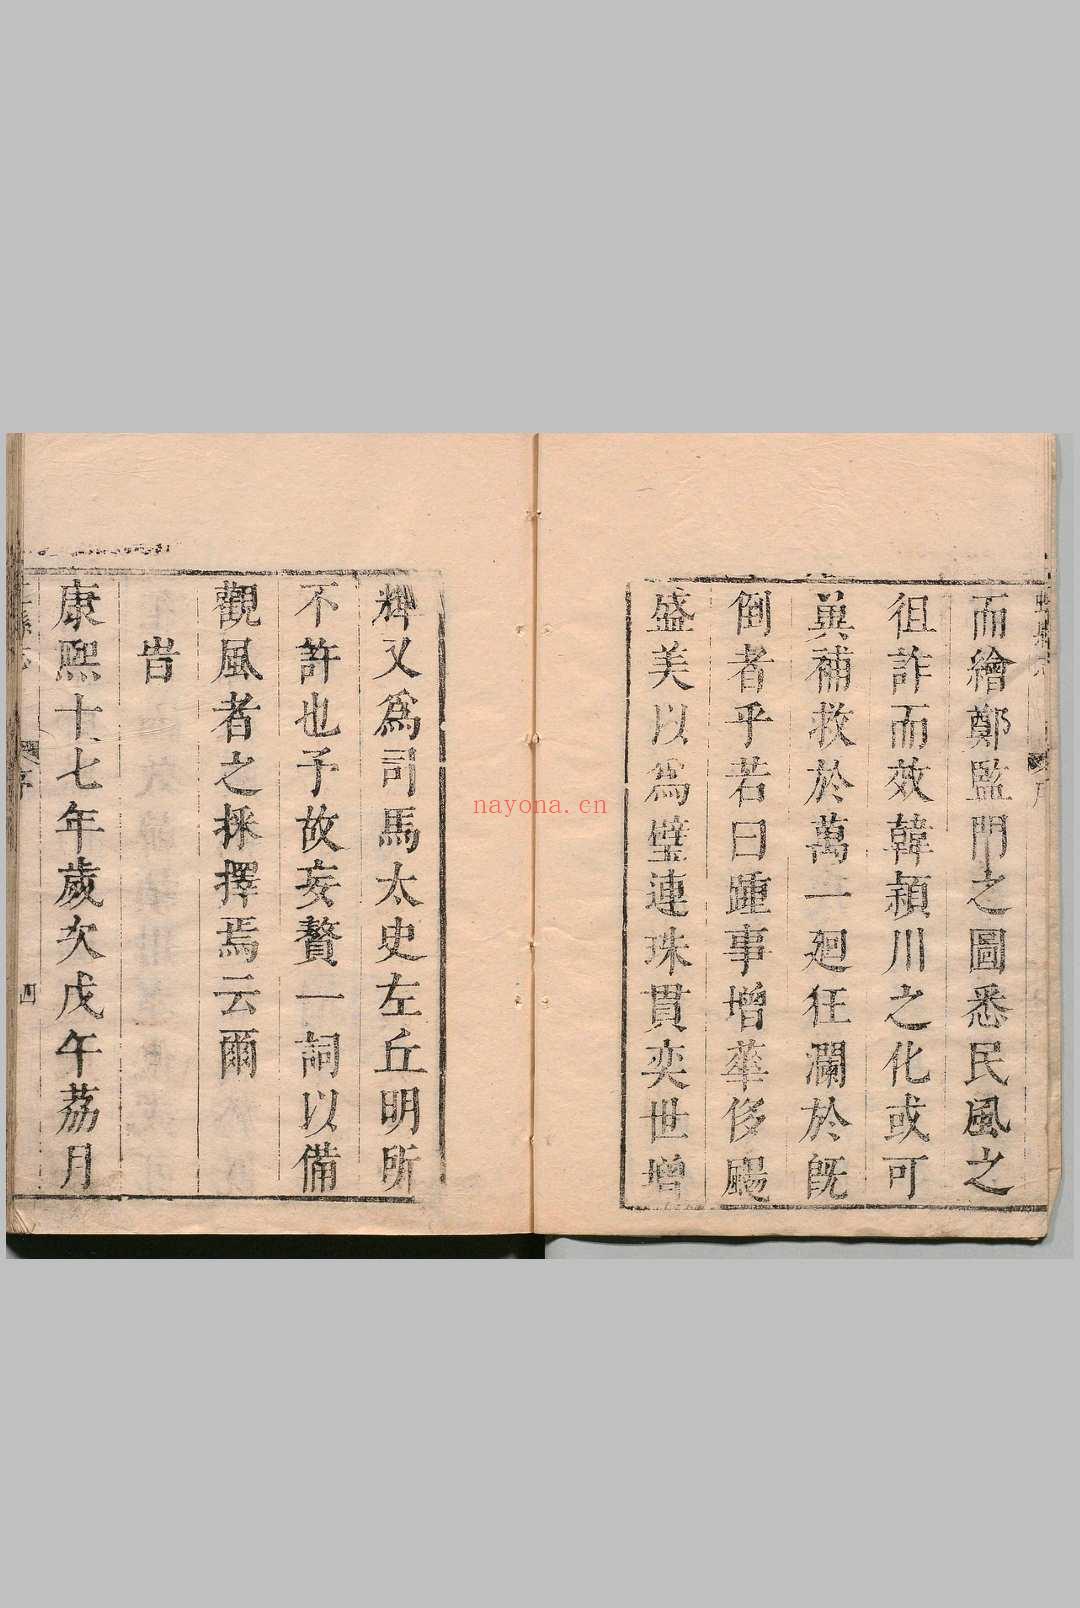 而繪鄭監門之圖悉民風之
徂詐而效韓潁川之化或可
冀補救於萬一廻狂瀾於旣
倒者乎若曰踵事增華侈颺
盛美以爲璧連珠貫奕世增
輝又爲司馬太史左丘明所
不許也予故妄贅一詞以備
觀風者之採擇焉云爾
旹
康熙十七年歲次戊午茘月
序
四
nayona.cn